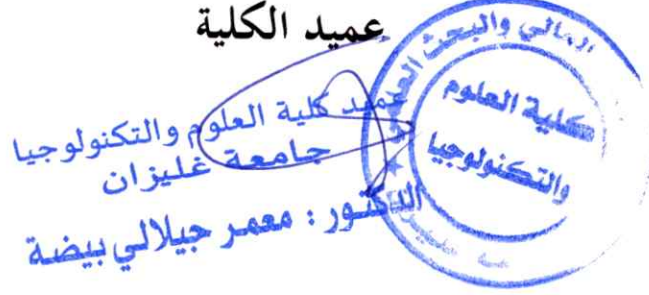 عميد الكلية
عميد كلية العلوم والتكنولوجيا
جامعة غليزان
الدكتور : معمر جيلالي بيضة
العالي والبحث
كلية العلوم
والتكنولوجيا